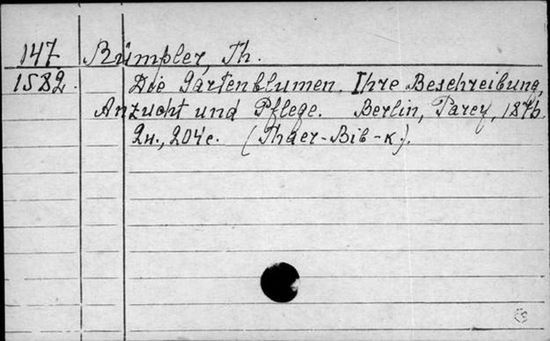 147 Rümpler, Th.
1582. Die Gartenblumen. Ihre Beschreibung,
Anzucht und Pflege. Berlin, Parey, 1876.
2н., 204с. (Thaer-Bib-к.).